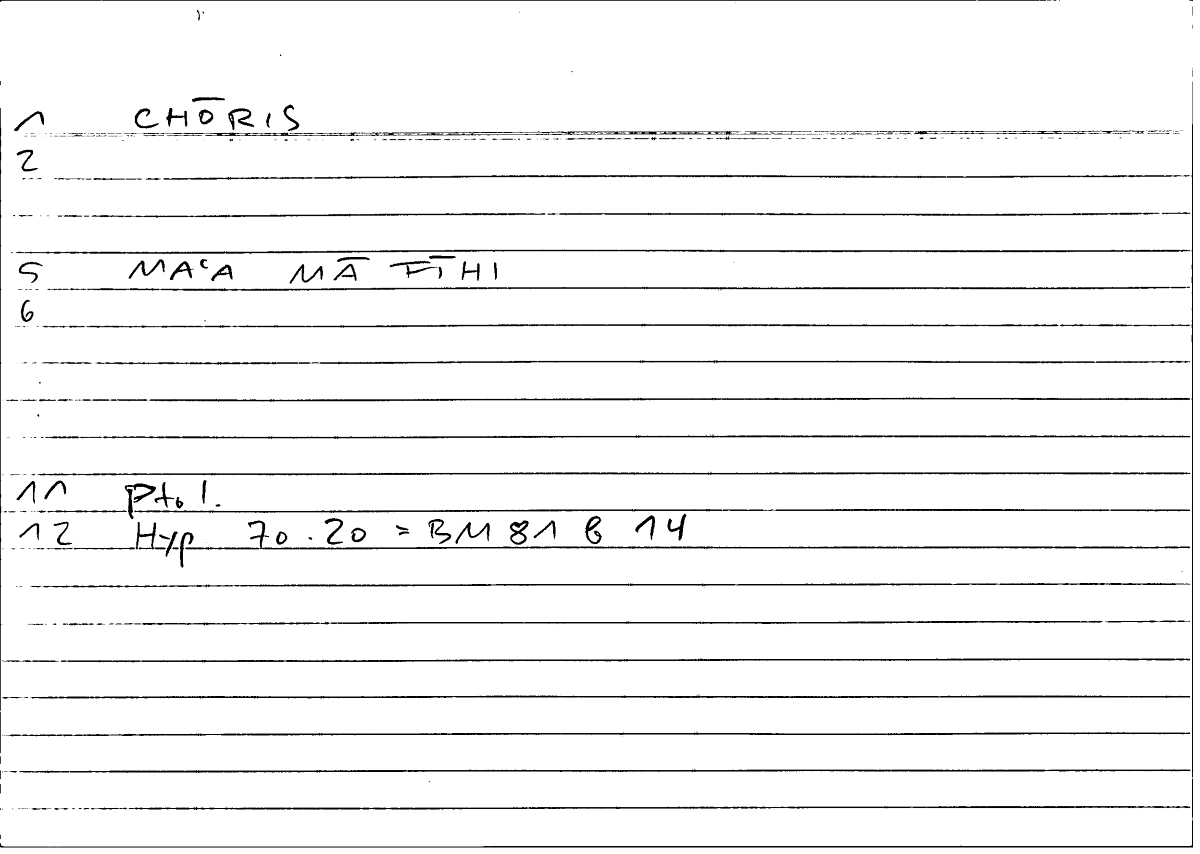 1 CHŌRIS
2
5 MAʿA MĀ FĪHI
6
11 Ptol.
12 Hyp 70.20 = BM 81 b 14